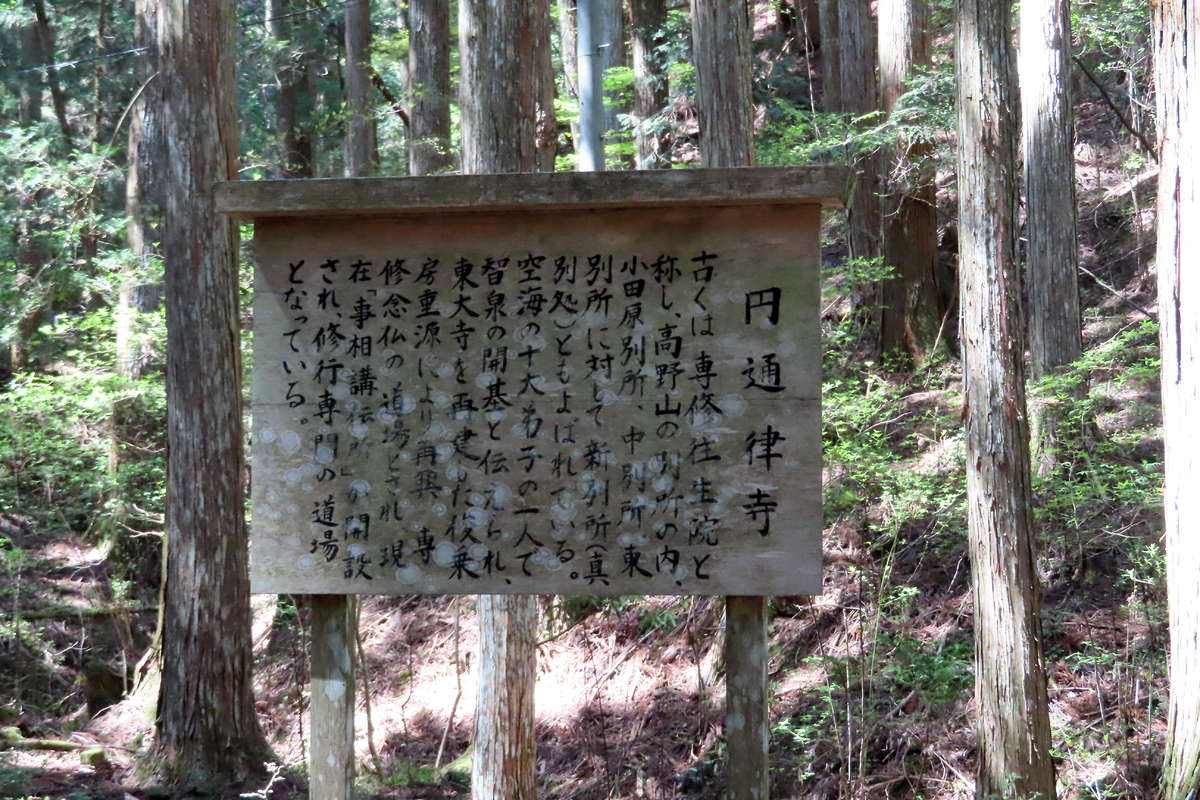 円通律寺
古くは専修往生院と
称し、高野山の別所の内、
小田原別所、中別所、東
別所に対して新別所(真
別処)ともよばれている。
空海の十大弟子の一人で
智泉の開基と伝えられ、
東大寺を再建した俊乗
房重源により再興 専
修念仏の道場とされ 現
在「事相講伝所」が開設
され、修行専門の道場
となっている。